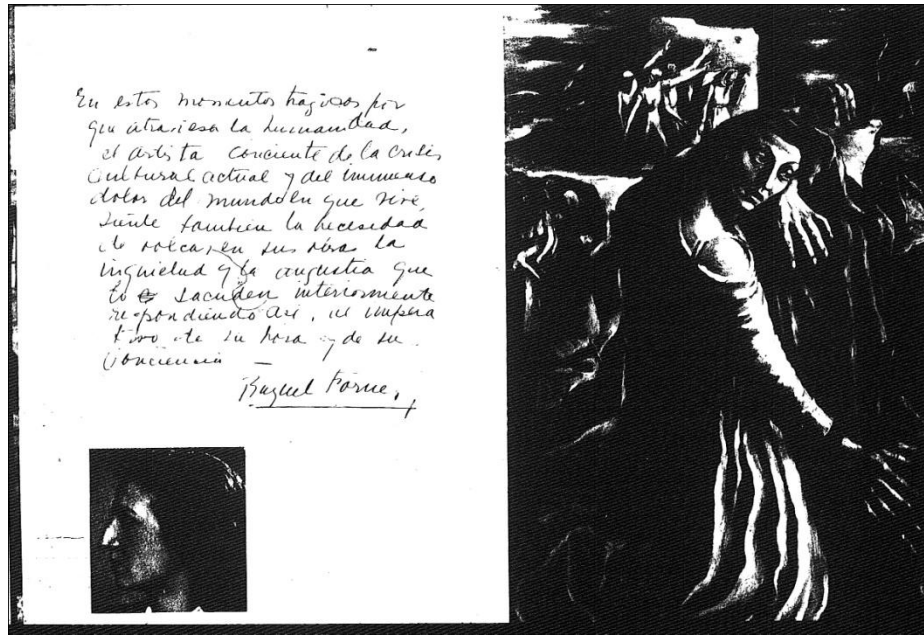 En estos momentos trágicos por
que atraviesa la humanidad,
el artista conciente de la crisis
cultural actual y del inmenso
dolor del mundo en que vive,
siente tambien la necesidad
de volcar en sus obras la
inquietud y la angustia que
lo sacuden interiormente
respondiendo así, al impera
tivo de su hora y de su
conciencia —
Raquel Forner